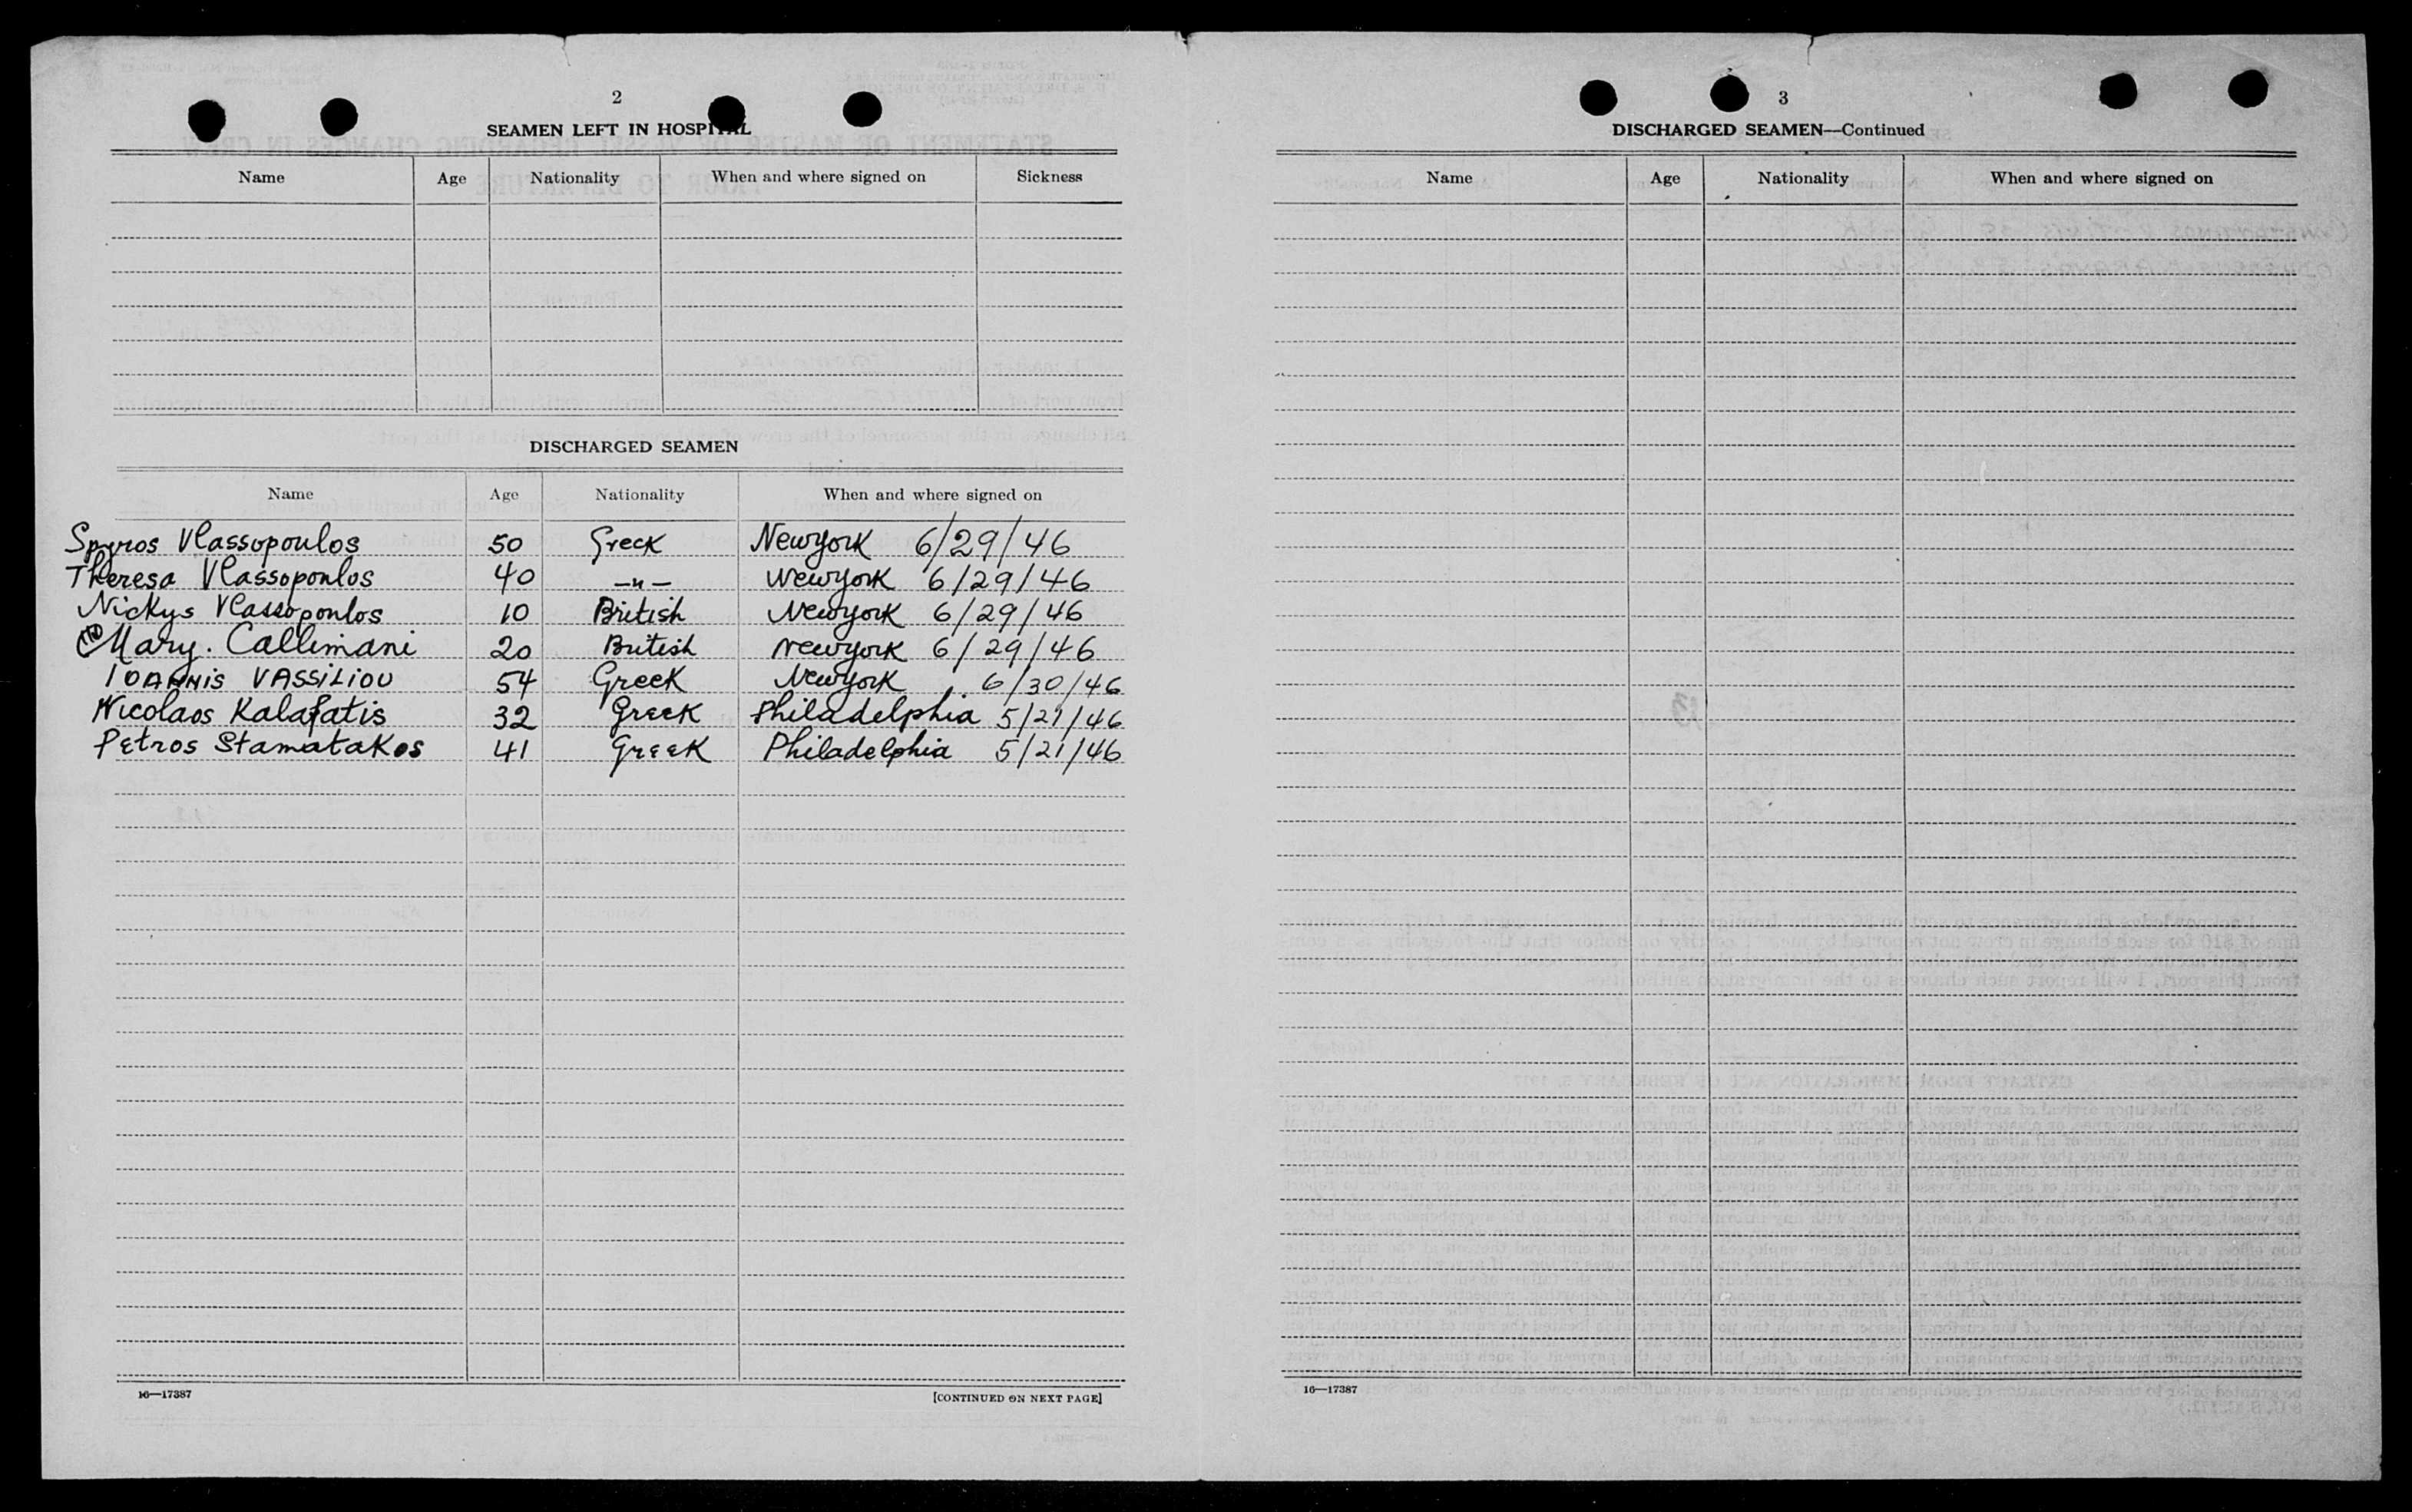 2
SEAMEN LEFT IN HOSPITAL
Name Age Nationality When and where signed on Sickness
DISCHARGED SEAMEN
Name Age Nationality When and where signed on
Spyros Vlassopoulos 50 Greek Newyork 6/29/46
Theresa Vlassopoulos 40 —"— Newyork 6/29/46
Nickys Vlassopoulos 10 British Newyork 6/29/46
Mary. Callimani 20 British Newyork 6/29/46
IOANNIS VASSILIOU 54 Greek Newyork 6/30/46
Nicolaos Kalafatis 32 Greek Philadelphia 5/21/46
Petros Stamatakos 41 Greek Philadelphia 5/21/46
16—17387 [CONTINUED ON NEXT PAGE]
3
DISCHARGED SEAMEN—Continued
Name Age Nationality When and where signed on
16—17387